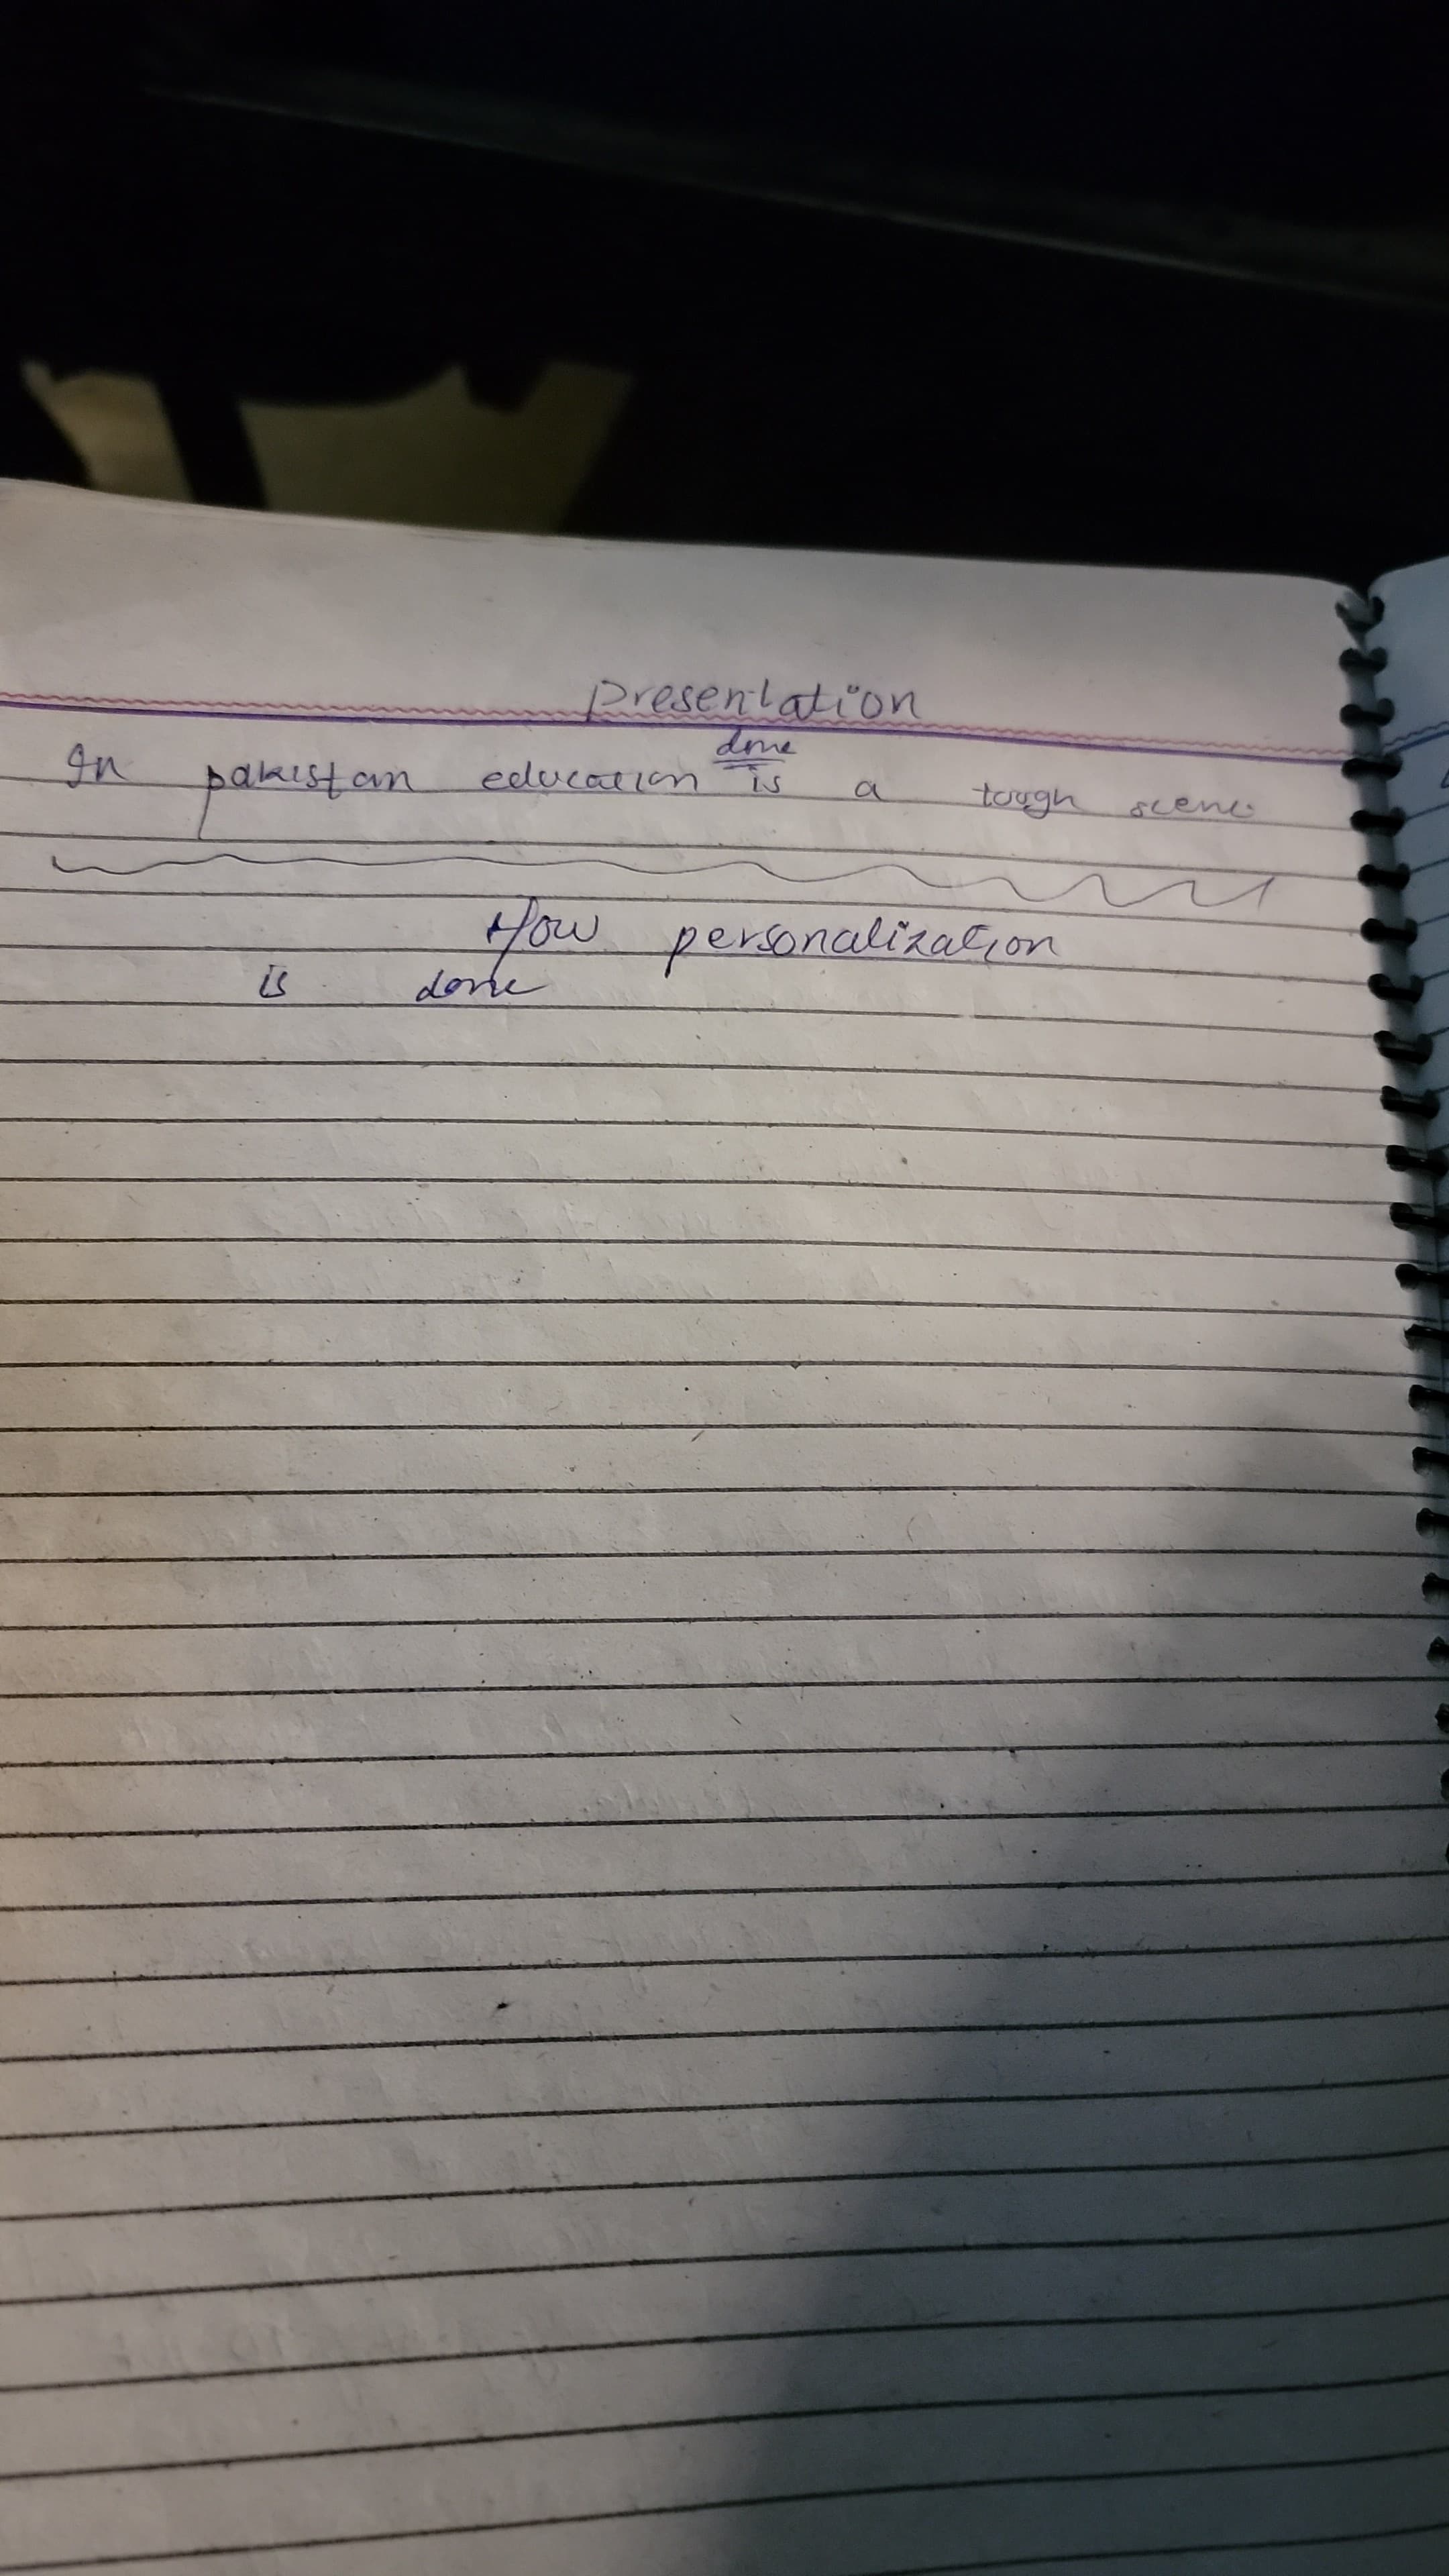 presentation
done
In pakistan education is a tough scene
How personalization
is done